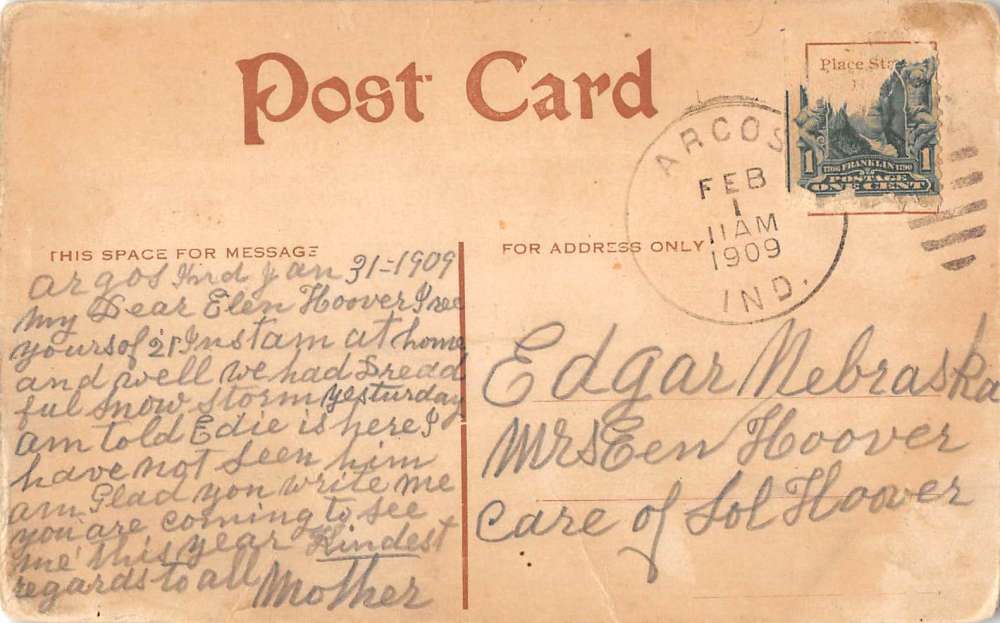 Post Card
Place Sta
1706 FRANKLIN 1790
1 POSTAGE 1
ONE CENT
ARGOS
FEB
1
11 AM
1909
IND.
THIS SPACE FOR MESSAGE
FOR ADDRESS ONLY
Argos Ind Jan 31-1909
My Dear Elen Hoover I rec
yours of 21 Inst am at home
and well we had Dread
ful Snow Storm yesturday
am told Edie is here I
have not seen him
am Glad you write me
you are coming to see
me this year Kindest
regards to all Mother
Edgar Nebraska
Mrs Een Hoover
Care of Sol Hoover